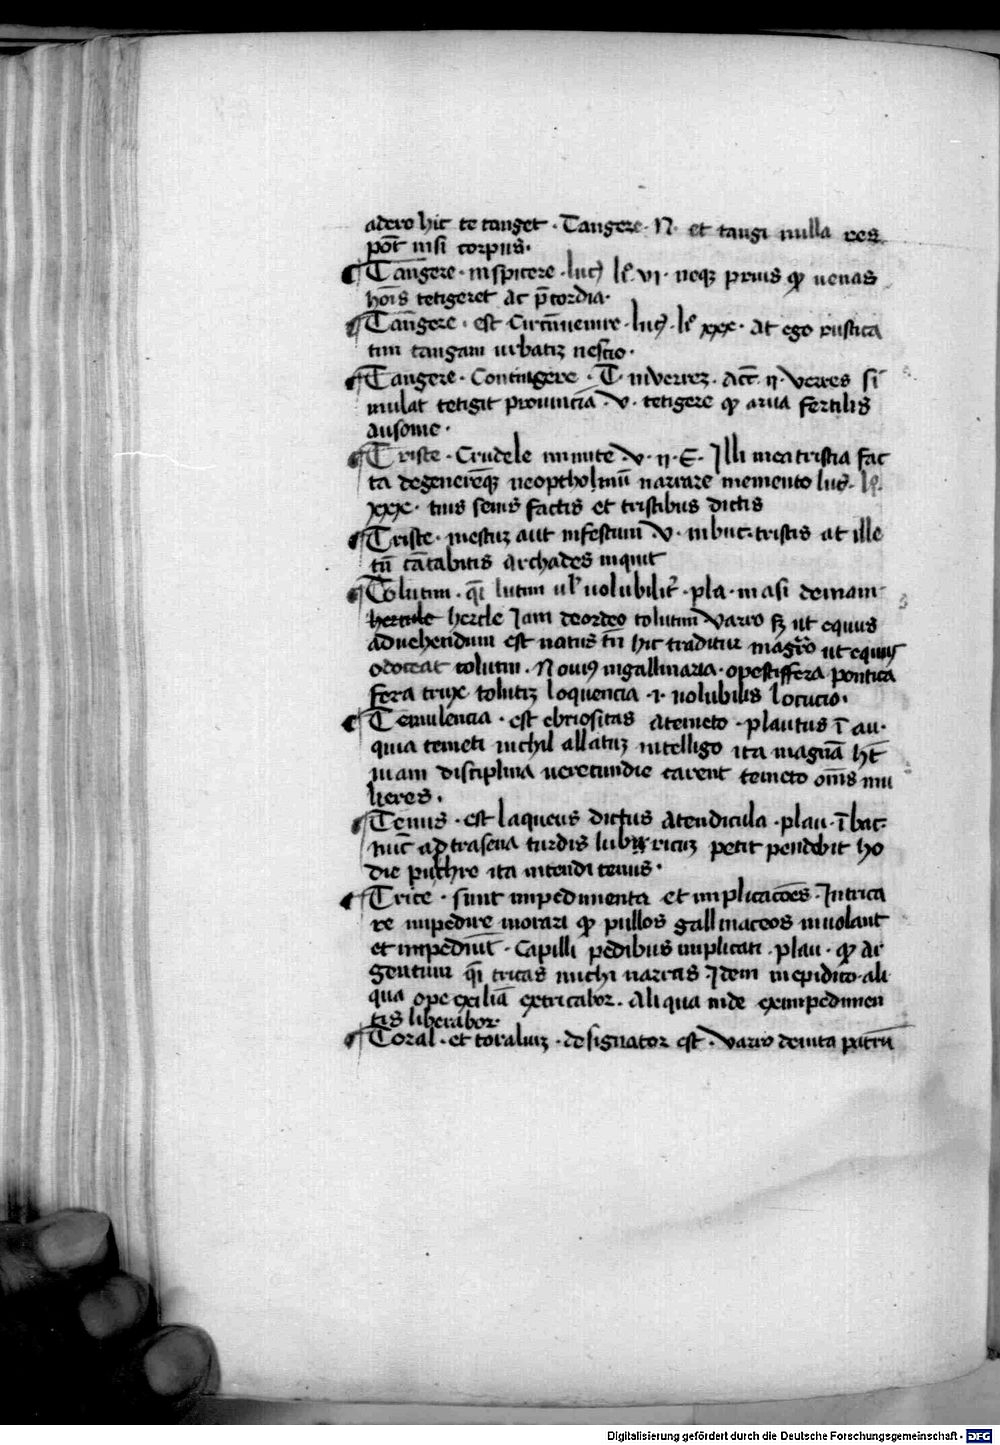 adero hic te tanget · Tangere · N · et tangi nulla res
põt nisi corpus ·
Tangere · inspicere · luc9 · VI · neqz prius venas
hoĩs tetigeret ac p̃cordia ·
Tangere · est Circũuenire · luc9 · xxx · At ego rustica
tim tangam urbatiz nescio ·
Tangere · Contingere · T · in verrez · Act · ij · verres si
mulat tetigit prouinciã · V · tetigere arua fertilis
ausonie ·
Triste · Crudele inmite V · ij · E · Illi mea tristia fac
ta degenerẽqz neoptholmũ narrare memento luc
xxx · tuis seuis factis et tristibus dictis
Triste · mestuz aut infestum V · in buc · tristis at ille
tñ cãtabitis archades inquit
Tolutim · lutim ul uolubilit · pla · in asi demam
hercule hercle Iam deordeo tolutim varro ut equus
aduehendum est natus tñ hic traditur ut equus
odoceat tolutim · Noui9 in gallinaria · opestiffera pontica
fera trux tolutiz loquencia · i · uolubilis locucio ·
Temulencia · est ebriositas atemeto · plautus ĩ au ·
quia temeti nichil allatuz intelligo ita magnã
nuam disciplina uerecundie carent temeto om̃s mu
lieres ·
Tenus · est laqueus dictus atendicula · plau · ĩ bac ·
nũc ad trasena turdis lubricuz petit pendebit ho
die pulchre ita intendi tenus ·
Trice · sunt impedimenta et implicacões · Intrica
re impedire morari pullos gallinaceos inuolant
et impediũt · Capilli pedibus implicati · plau · Ar
gentum tricas michi narras · Idem in epidico · ali
qua ope exiliã extricabor · Aliqua inde eximpedimen
tis liberabor ·
Toral · et toraliuz · designator est · varro deuita patrũ
Digitalisierung gefördert durch die Deutsche Forschungsgemeinschaft · DFG